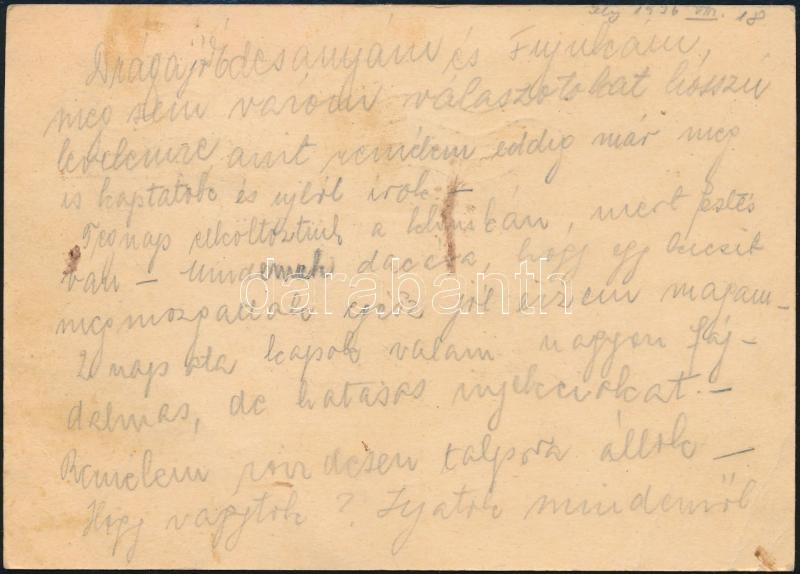 1936 VIII. 18
Drága jó Édesanyám és Fujukám,
meg sem várom válaszotokat hosszú
levelemre amit remélem eddig már meg
is kaptatok és ujból irok –
Tegnap elköltöztünk a klinikán, mert festés
van – Mindennek daccára, hogy egy kicsit
megmozgattak egész jól érzem magam –
2 nap óta kapok valami nagyon fáj-
dalmas, de hatásos injekciókat. –
Remélem rövidesen talpra állok –
Hogy vagytok? Irjatok mindenről
darabanth